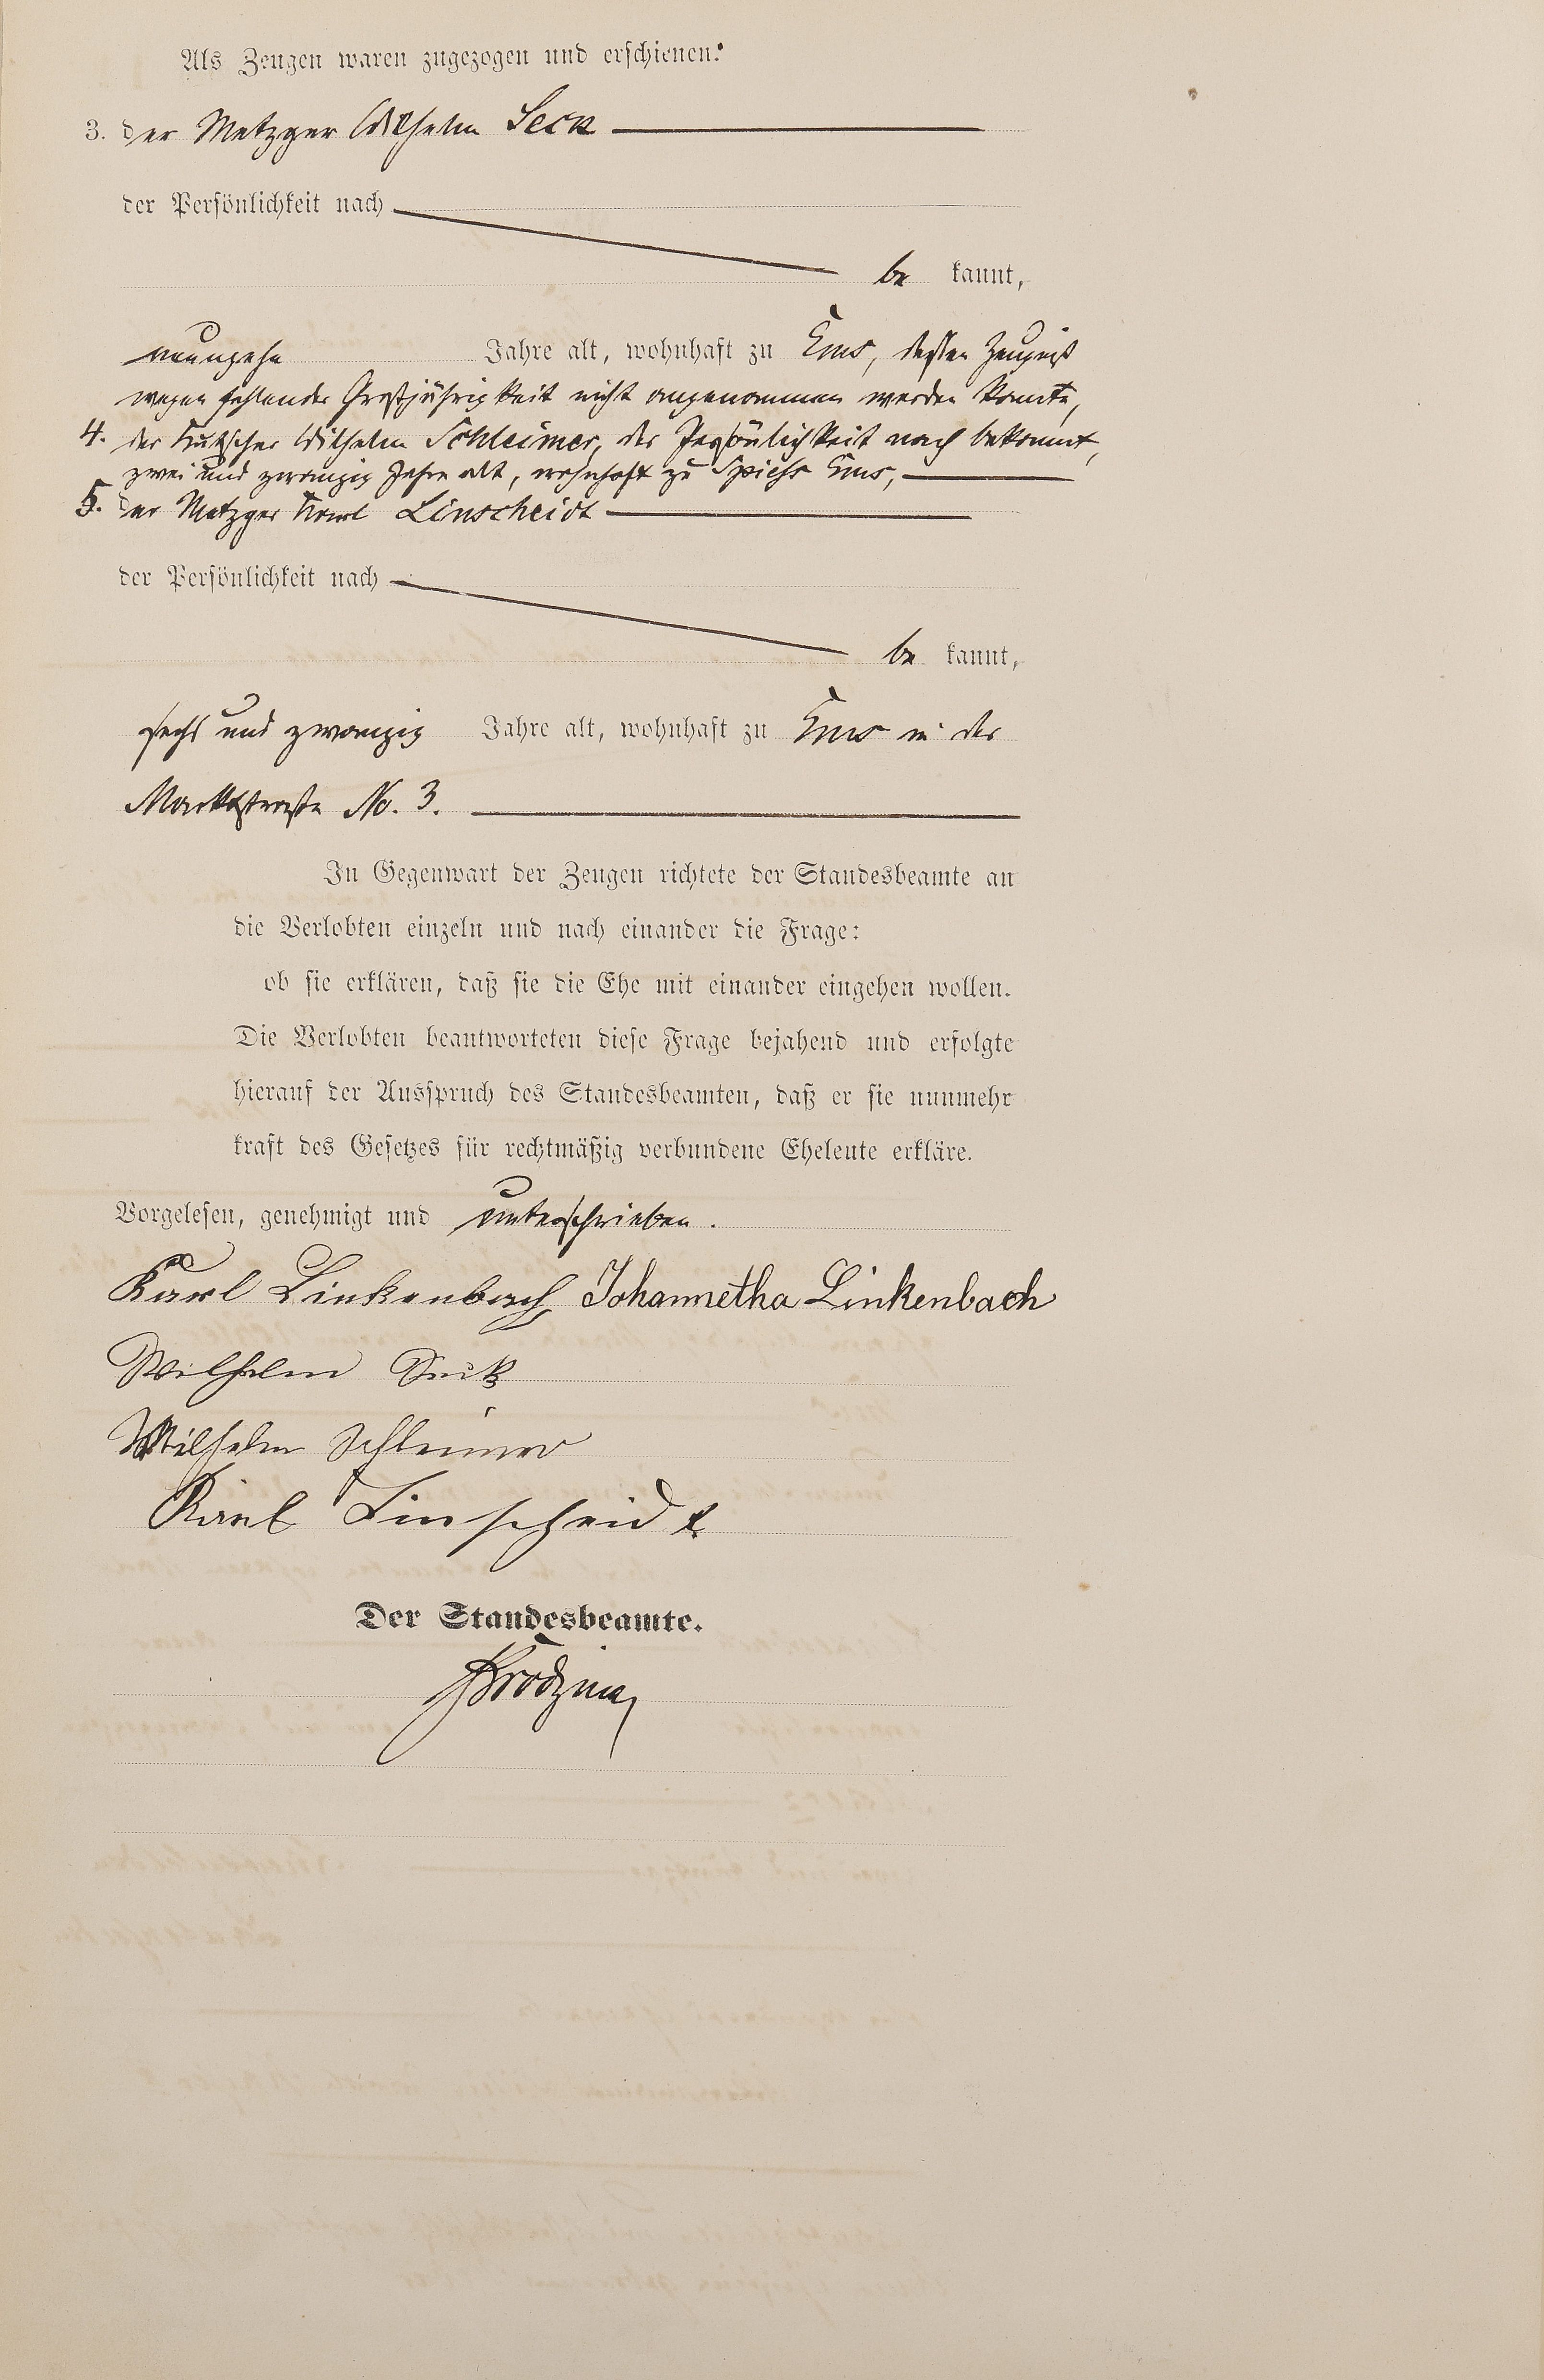 Als Zeugen waren zugezogen und erschienen:
3. der Metzger Wilhelm Seck
der Persönlichkeit nach
be kannt,
neunzehn Jahre alt, wohnhaft zu Ems, dessen Zeugniß
wegen fehlender Großjährigkeit nicht angenommen werden konnte,
4. der Kutscher Wilhelm Schleimer, der Persönlichkeit nach bekannt,
zwei und zwanzig Jahre alt, wohnhaft zu Spiess Ems,
5. der Metzger Karl Linscheidt
der Persönlichkeit nach
be kannt,
sechs und zwanzig Jahre alt, wohnhaft zu Ems in der
Marktstraße No. 3.
In Gegenwart der Zeugen richtete der Standesbeamte an
die Verlobten einzeln und nach einander die Frage:
ob sie erklären, daß sie die Ehe mit einander eingehen wollen.
Die Verlobten beantworteten diese Frage bejahend und erfolgte
hierauf der Ausspruch des Standesbeamten, daß er sie nunmehr
kraft des Gesetzes für rechtmäßig verbundene Eheleute erkläre.
Vorgelesen, genehmigt und unterschrieben.
Karl Linkenbach Johannetha Linkenbach
Wilhelm Seck
Wilhelm Schleimer
Karl Linscheidt
Der Standesbeamte.